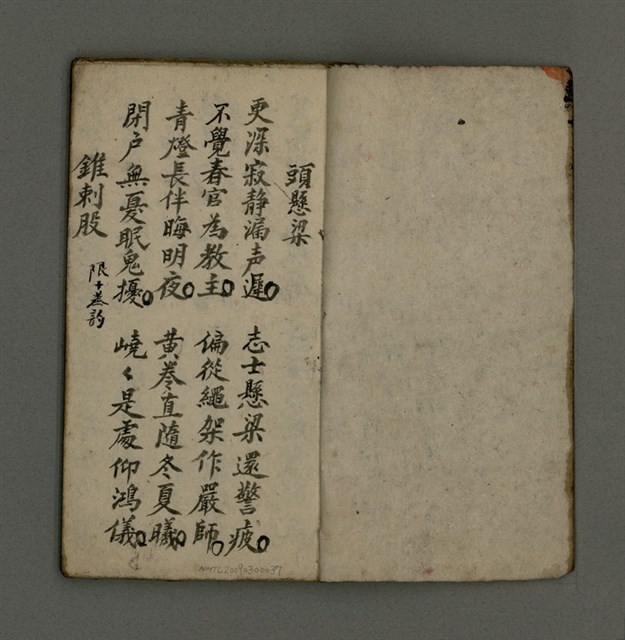 頭懸梁
更深寂静漏声遲 志士懸梁還警疲
不覺春官為教主 偏從繩架作嚴師
青燈長伴晦明夜 黄卷直隨冬夏曦
閉户無憂眠鬼擾 嶢々是處仰鴻儀
錐刺股 限十蒸韵
NMTL20090300037